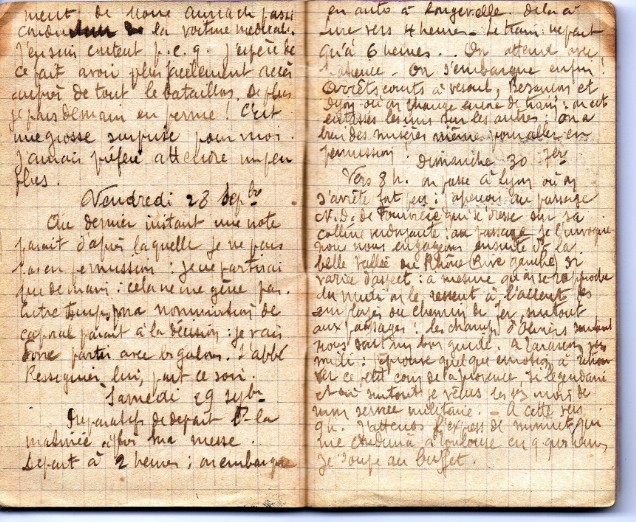 ment de
conducteur de la voiture médicale.
J'en suis content p.c.q. j'espère de
ce fait avoir plus facilement accès
auprès de tout le bataillon. De plus
je pars demain en perme ! C'est
une grosse surprise pour moi.
J'aurais préféré attendre un peu
plus.
Vendredi 28 Sepbre
Au dernier instant une note
parait d'après laquelle je ne pars
pas en permission : je ne partirai
que demain : cela ne me gêne pas.
Entre temps, ma nomination de
caporal parait à la décision : je vais
donc partir avec galons. L'abbé
Resseguier, lui, part ce soir.
Samedi 29 sepbre
Préparatifs de départ la
matinée après ma messe.
Départ à 2 heures ; on embarque
en auto à Longevelle. De là à
Lure vers 4 heures - Le train ne part
qu'à 6 heures... On attend
On s'embarque enfin !
Arrêts courts à Vesoul, Besançon et
Dijon où on change encore de train : on est
entassés les uns sur les autres : on a
bien des misères même pour aller en
permission !
Dimanche 30 7bre
Vers 8 h. on passe à Lyon où on
s'arrête fort peu : j'aperçois au passage
N.D. de Fourvière qui se dresse sur sa
colline : au passage je l'invoque
nous nous engageons ensuite ds la
belle vallée du Rhône (rive gauche) si
variée d'aspect : à mesure qu'on se rapproche
du midi on le ressent à l'accent des
employés du chemin de fer, surtout
aux paysages : les champs d'oliviers
nous A Tarascon vers
midi : j'éprouve quelque émotion à
ce petit coin de Provence, si légendaire
et où surtout je vécus les 13 mois de
mon service militaire. - A Cette vers
J'attends l'express de minuit qui
me à Toulouse en 4
Je soupe au buffet.